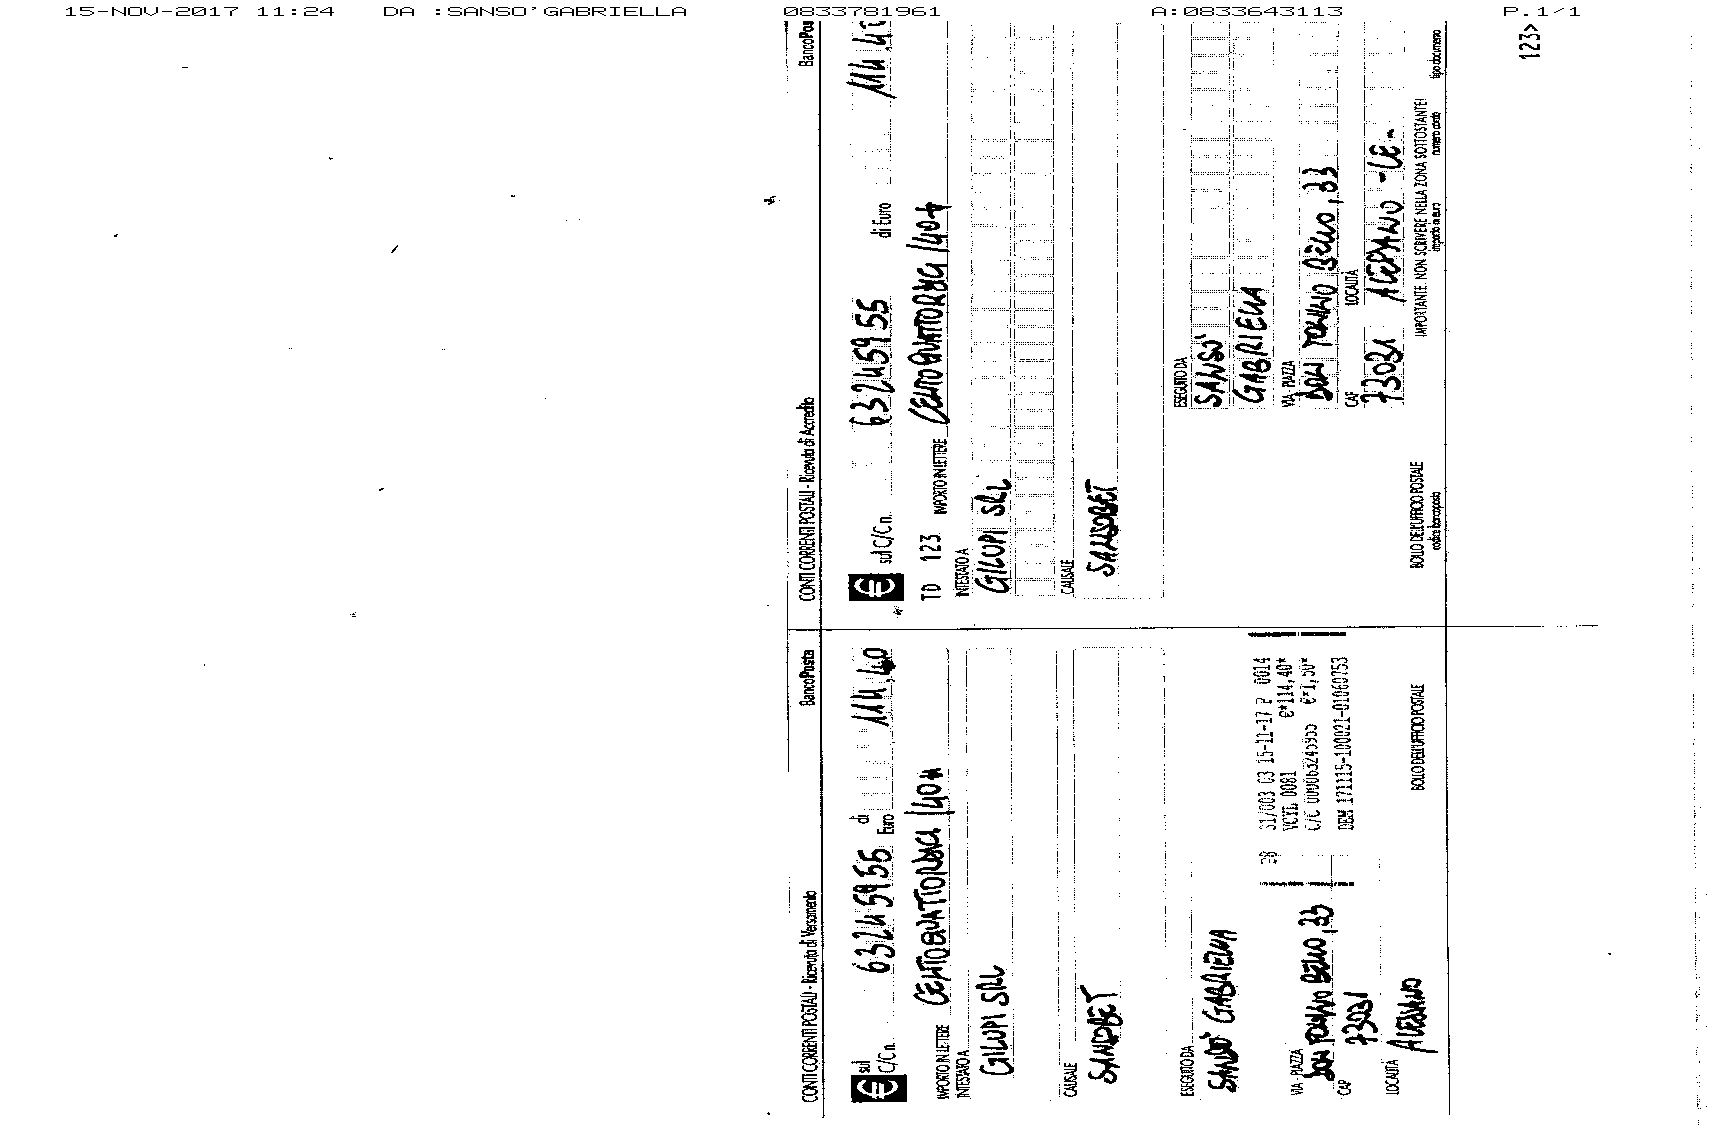 15-NOV-2017 11:24 DA :SANSO'GABRIELLA 0833781961 A:0833643113 P.1/1
CONTI CORRENTI POSTALI - Ricevuta di Versamento BancoPosta
€ sul C/C n. 63245955 di Euro 114,40
IMPORTO IN LETTERE CENTOQUATTORDICI/40
INTESTATO A
GILUPI SRL
CAUSALE
SANSOBET
ESEGUITO DA
SANSO' GABRIELLA
VIA - PIAZZA
DON TONINO BELLO, 33
CAP
73031
LOCALITÀ
ALESSANO
28 31/003 03 15-11-17 P 0014
VCYL 0081 €*114,40*
C/C 000063245955 €*1,50*
DEM 171115-100021-01060753
BOLLO DELL'UFFICIO POSTALE
CONTI CORRENTI POSTALI - Ricevuta di Accredito BancoPos
€ sul C/C n. 63245955 di Euro 114,40
TD 123 IMPORTO IN LETTERE CENTOQUATTORDICI/40
INTESTATO A
GILUPI SRL
CAUSALE
SANSOBET
ESEGUITO DA
SANSO'
GABRIELLA
VIA - PIAZZA
DON TONINO BELLO, 33
CAP LOCALITÀ
73031 ALESSANO - LE
BOLLO DELL'UFFICIO POSTALE IMPORTANTE: NON SCRIVERE NELLA ZONA SOTTOSTANTE!
codice bancoposta importo in euro numero conto tipo documento
123>